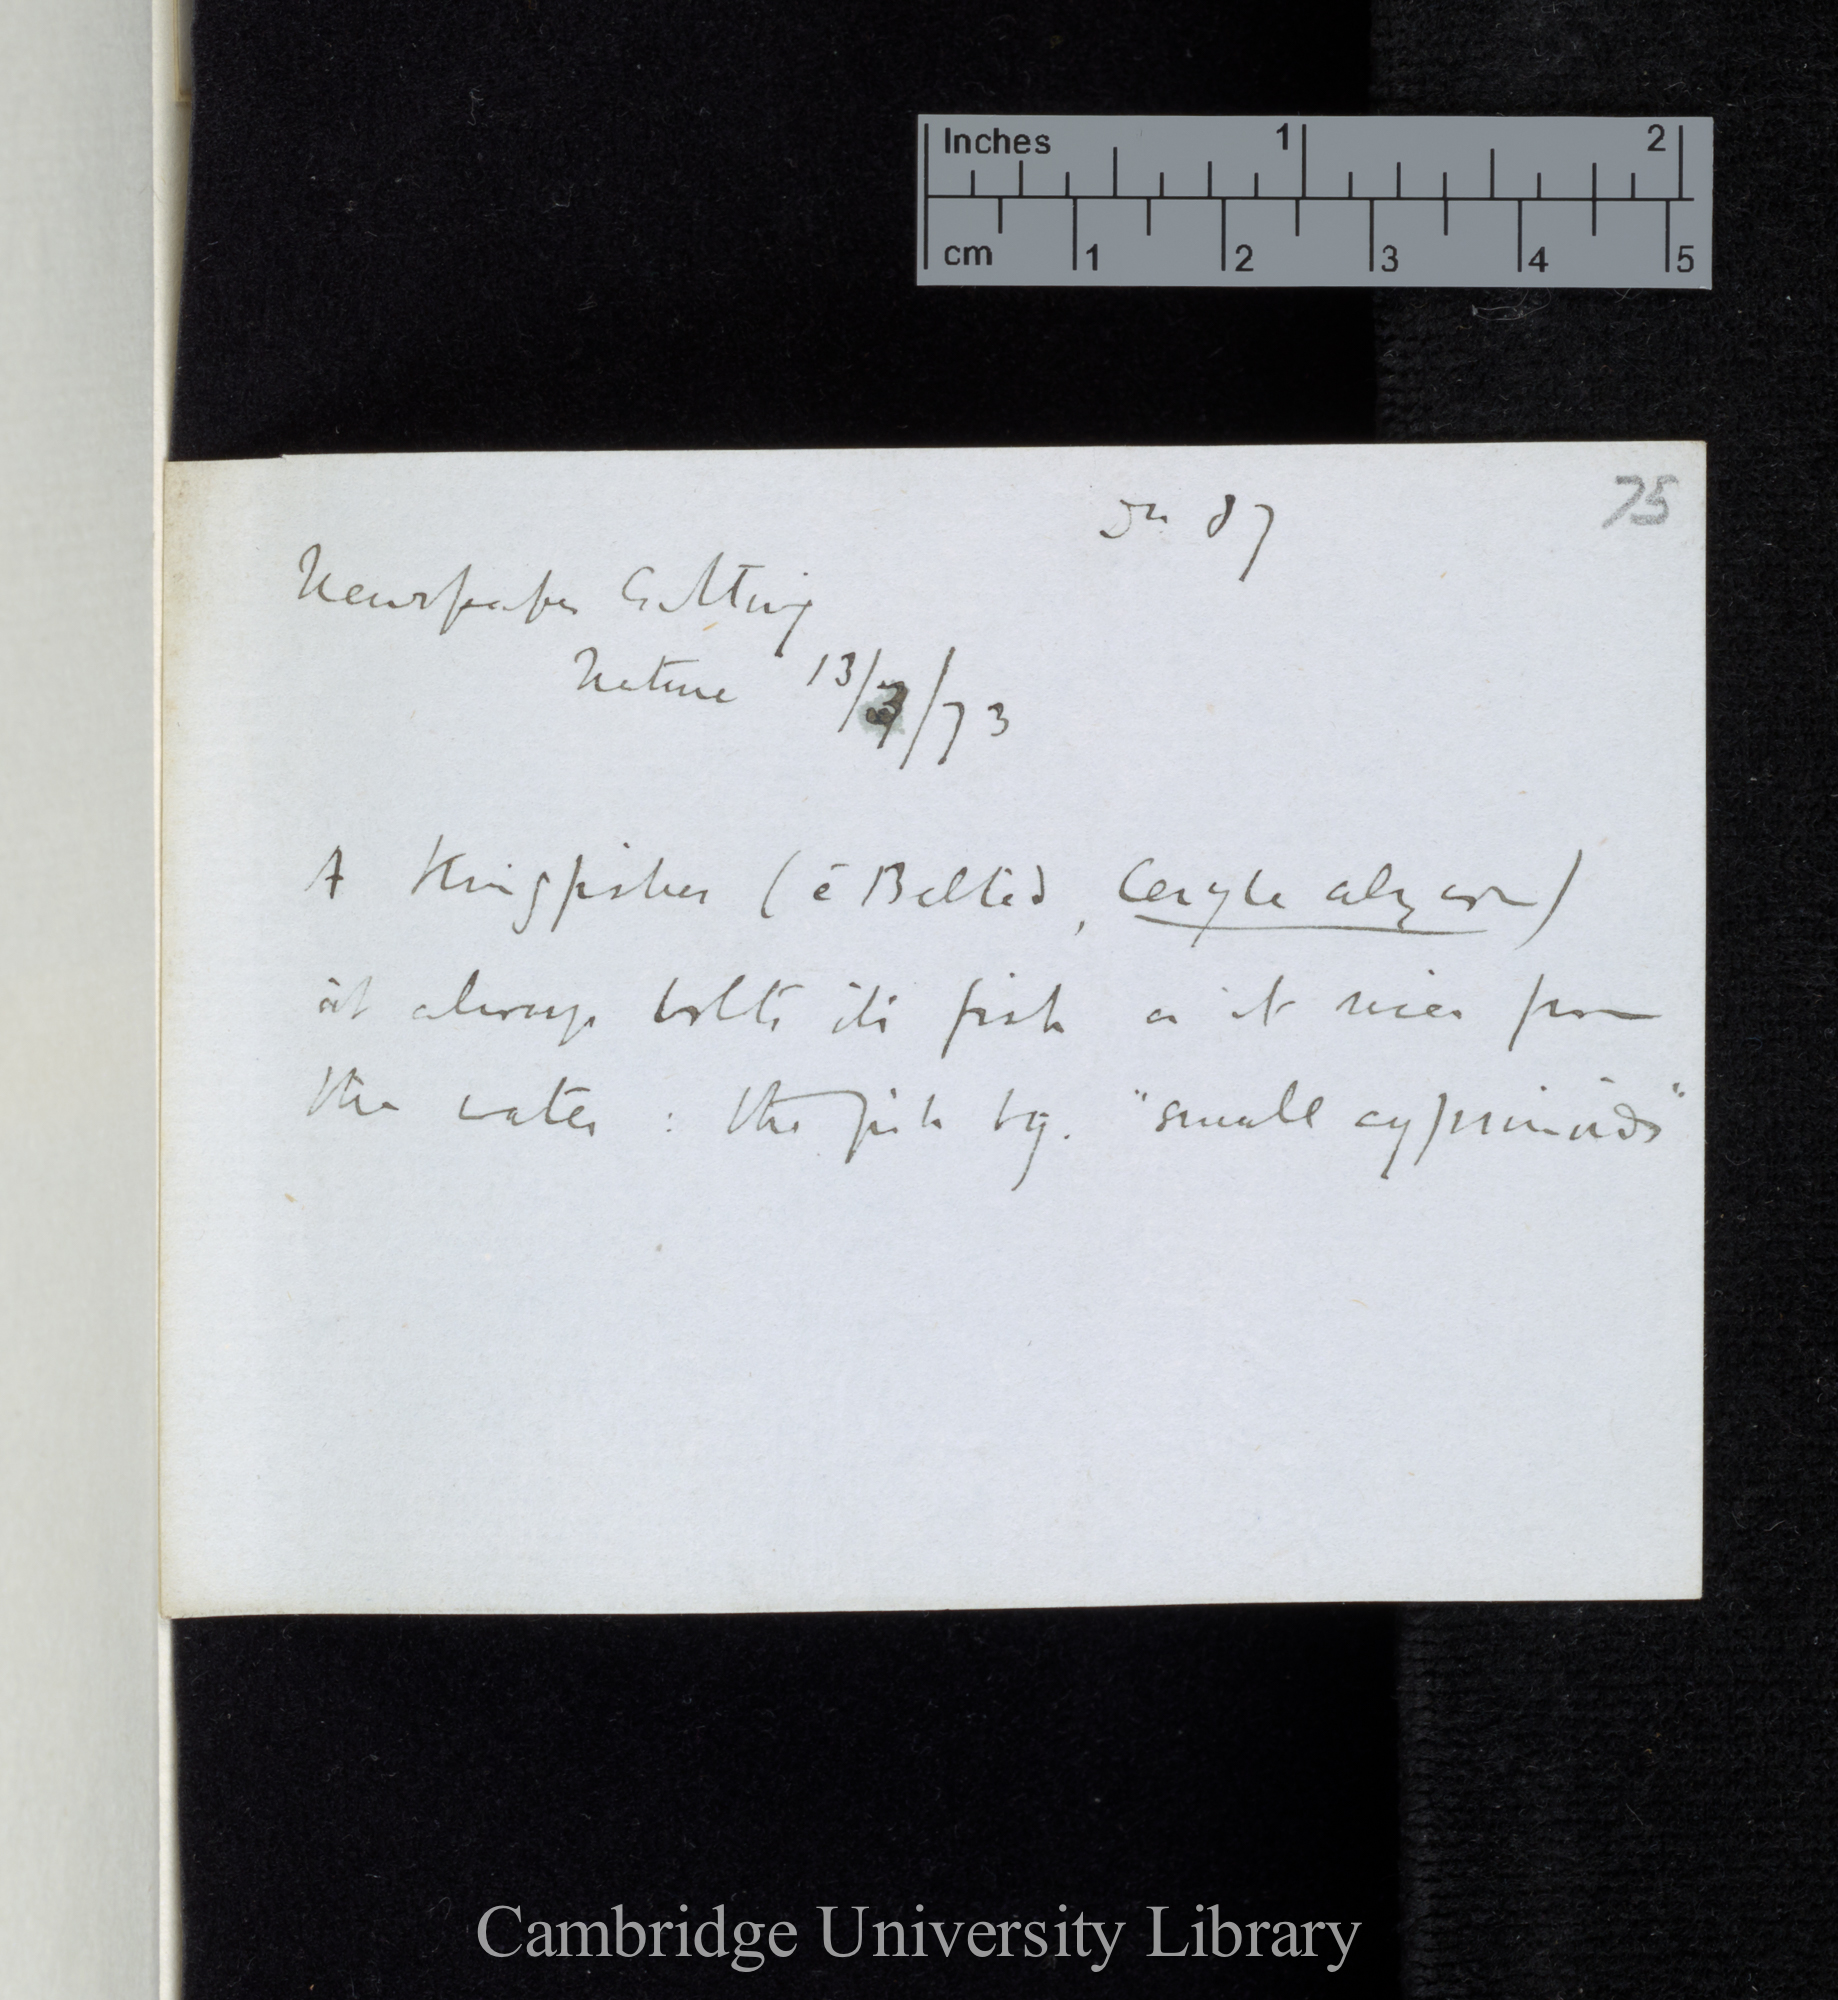 Inches 1 2
cm 1 2 3 4 5
75
87
Newspaper Cutting
Nature 13/3/73
A Kingfisher (ē Belted, Ceryle alcyon)
it always bolts its fish as it rises from
the water : the fish bg. "small cyprinoids"
Cambridge University Library